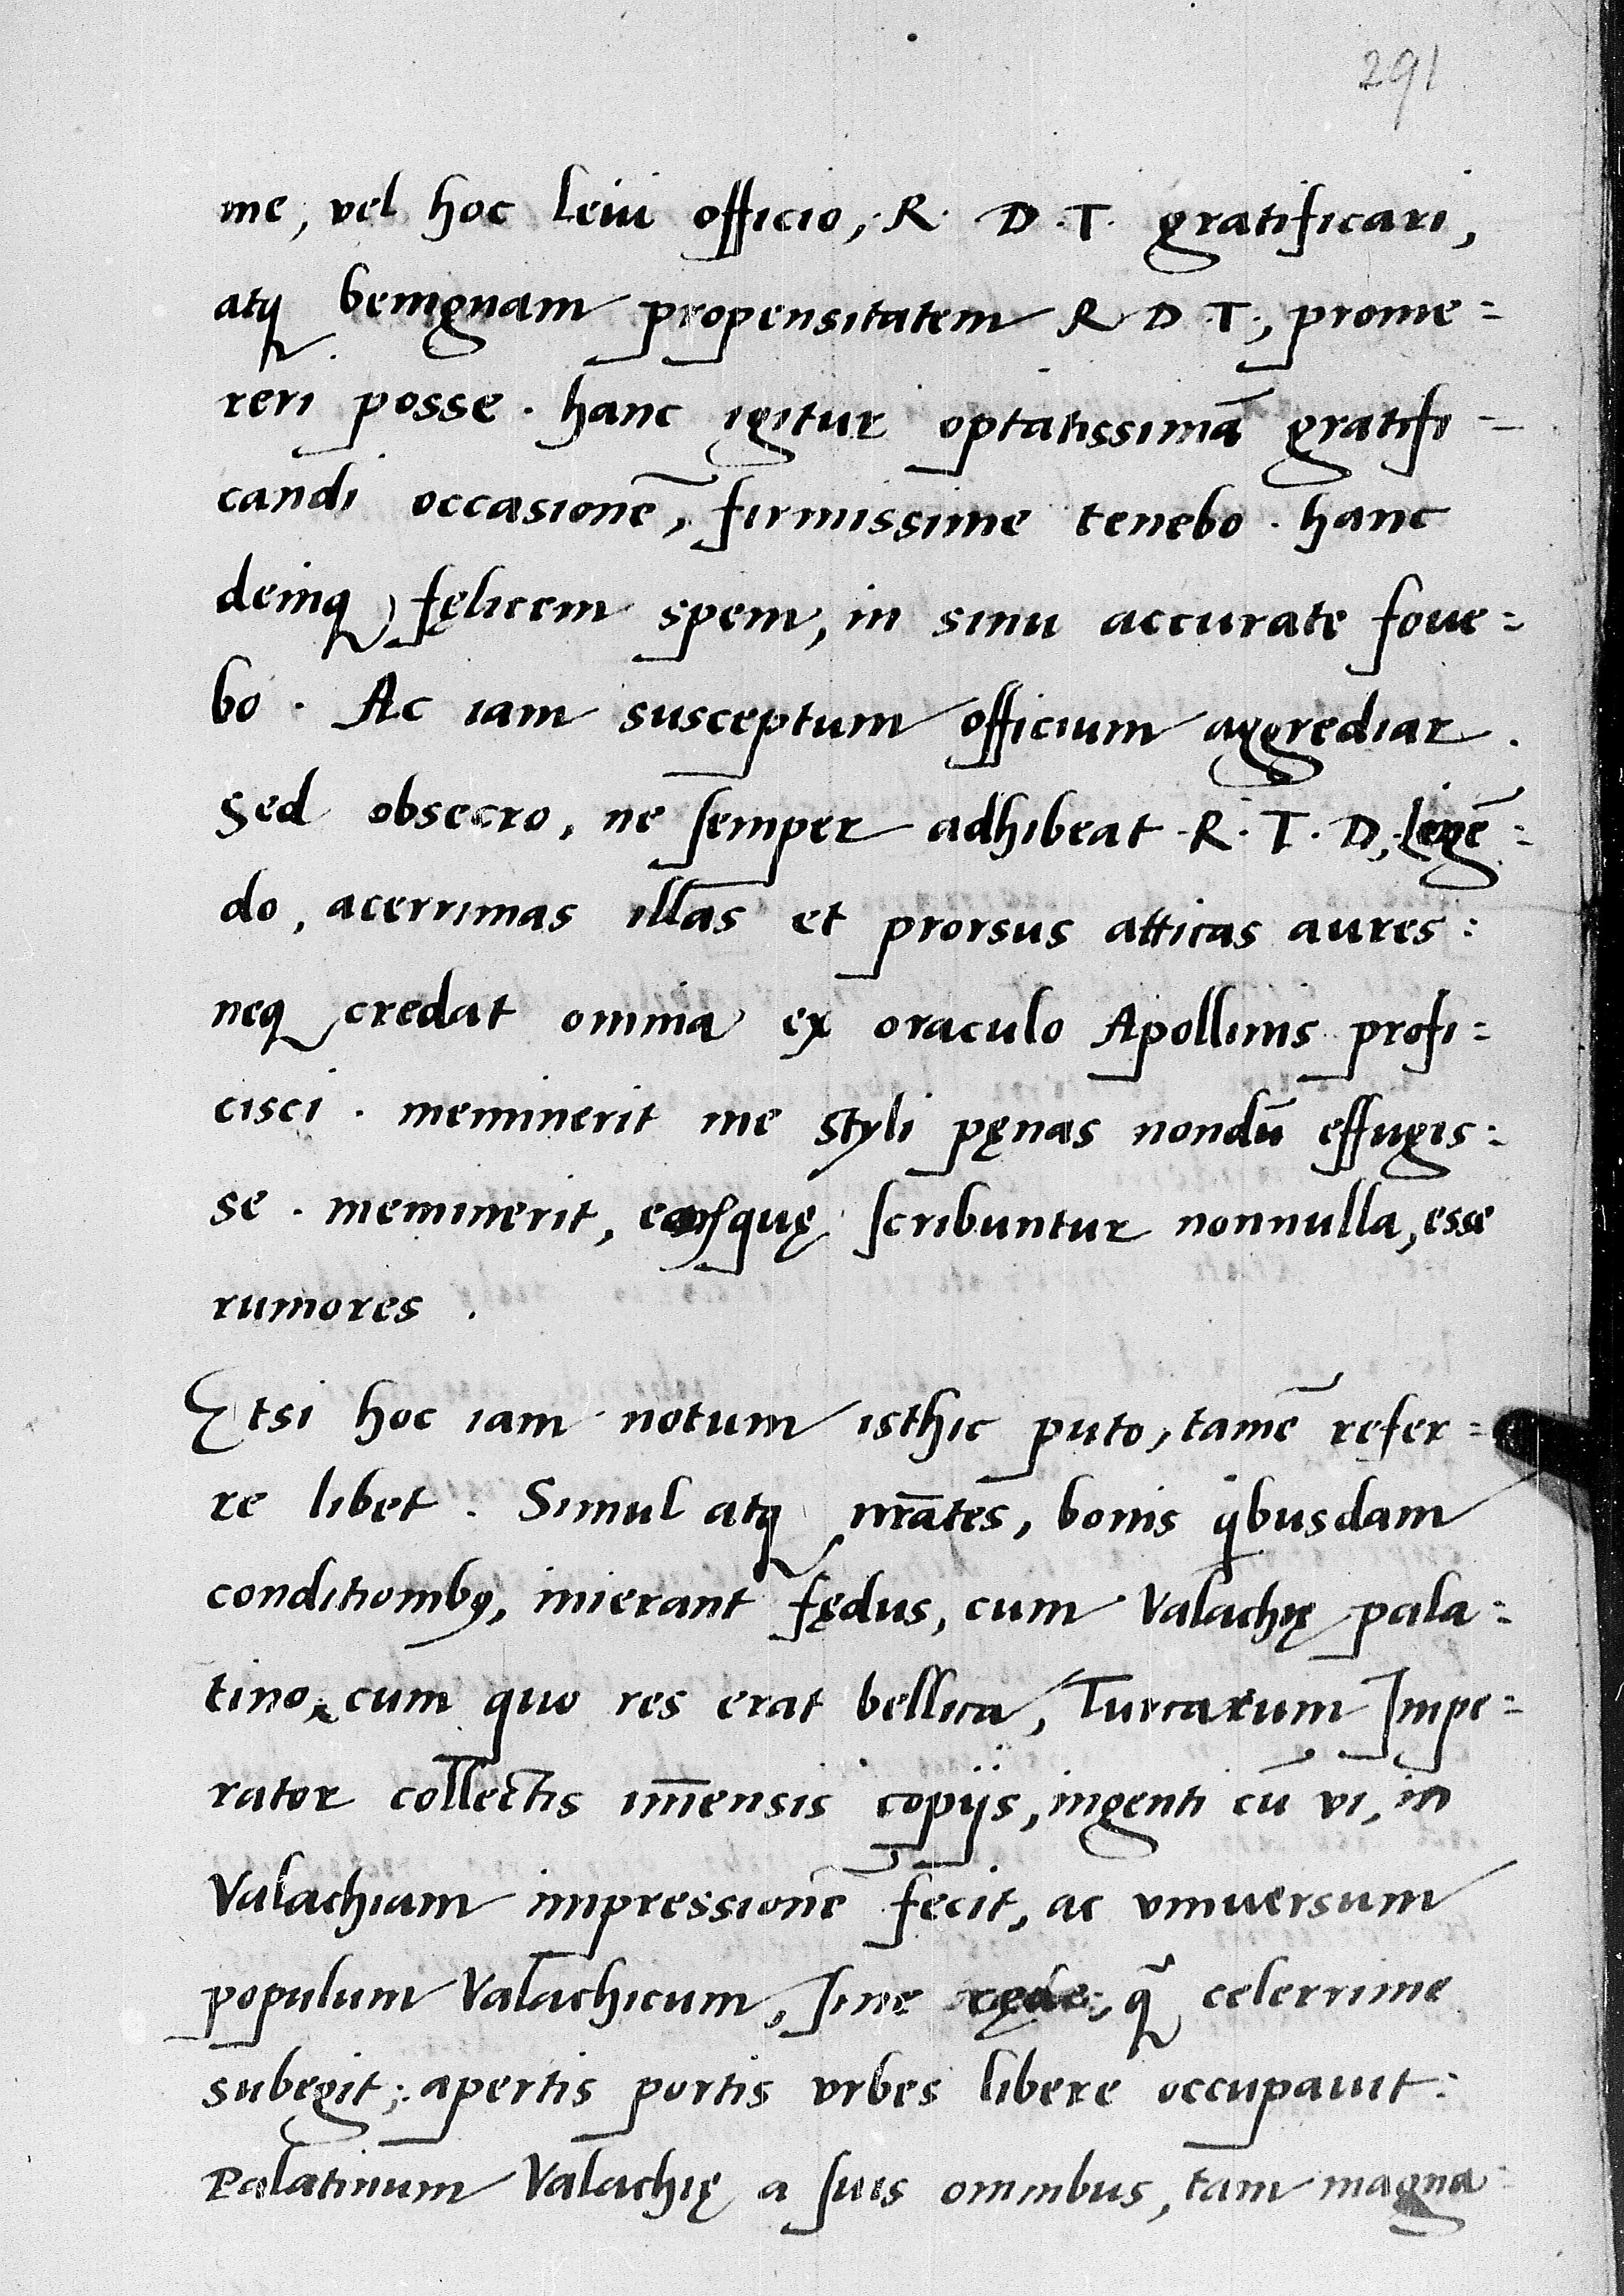 291
me, vel hoc leui officio, R. D. T. gratificari,
atq benignam propensitatem R D T., prome=
reri posse. hanc igitur optatissimā gratifi-
candi occasionē, firmissime tenebo. hanc
deinq, fęlicem spem, in sinu accurate foue=
bo. Ac iam susceptum officium aggrediar.
Sed obsecro, ne semper adhibeat R. T. D., legē=
do, acerrimas illas et prorsus atticas aures:
neq credat omnia ex oraculo Apollinis profi=
cisci. meminerit me styli pęnas nondū effugis=
se. meminerit, quę scribuntur nonnulla, esse
rumores.
Etsi hoc iam notum isthic puto, tamē refer=
re libet. Simul atq nrātes, bonis qbusdam
conditionibꝰ, inierant fędus, cum Valachię pala=
tino, cum quo res erat bellica, Turcarum Impe=
rator collectis im̄ensis copijs, ingenti cū vi, in
Valachiam impressionē fecit, ac vniuersum
populum Valachicum, sine cęde, q̄ celerrime
subegit; apertis portis vrbes libere occupauit:
Palatinum Valachię a suis omnibus, tam magna=